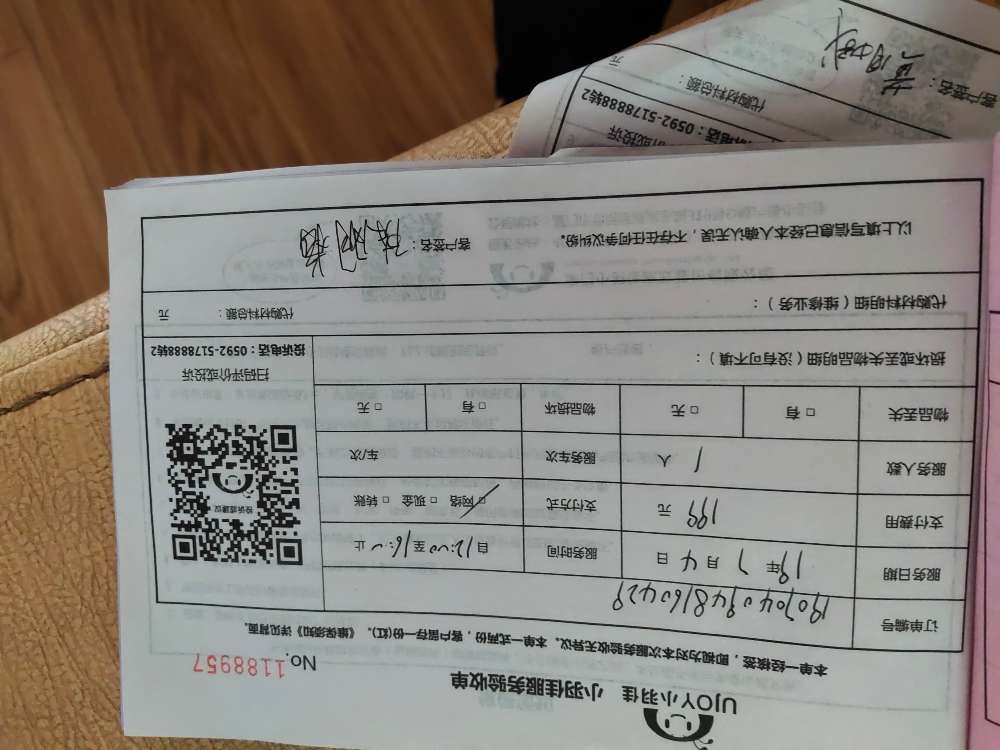 UJOY小羽佳 小羽佳服务验收单
No. 1188957
本单一经核签，即视为对本次服务验收无异议。本单一式两份，客户留存一份(红)。《维保须知》详见背面。
订单编号 1907040948160429
服务日期 19年7月4日 服务时间 自12:00至16:00止
支付费用 199元 支付方式 □网络 □现金 □转账
服务人数 1人 服务车次 车/次
物品丢失 □有 □无 物品损坏 □有 □无
投诉或建议
扫码评价或投诉
投诉电话：0592-5178888转2
损坏或丢失物品明细（没有可不填）：
代购材料明细（维修业务）： 代购材料总额： 元
以上填写信息已经本人确认无误，不存在任何争议纠纷。 客户签名：
或投诉
诉电话：0592-5178888转2
代购材料总额： 元
客户签名：